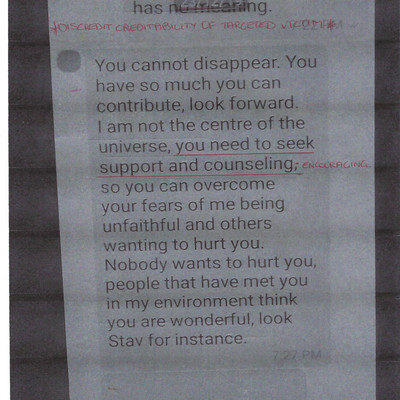 has no meaning.
DISCREDIT CREDITABILITY OF TARGETED VICTIM
You cannot disappear. You
have so much you can
contribute, look forward.
I am not the centre of the
universe, you need to seek
support and counseling, ENCOURAGING
so you can overcome
your fears of me being
unfaithful and others
wanting to hurt you.
Nobody wants to hurt you,
people that have met you
in my environment think
you are wonderful, look
Stav for instance.
7:27 PM